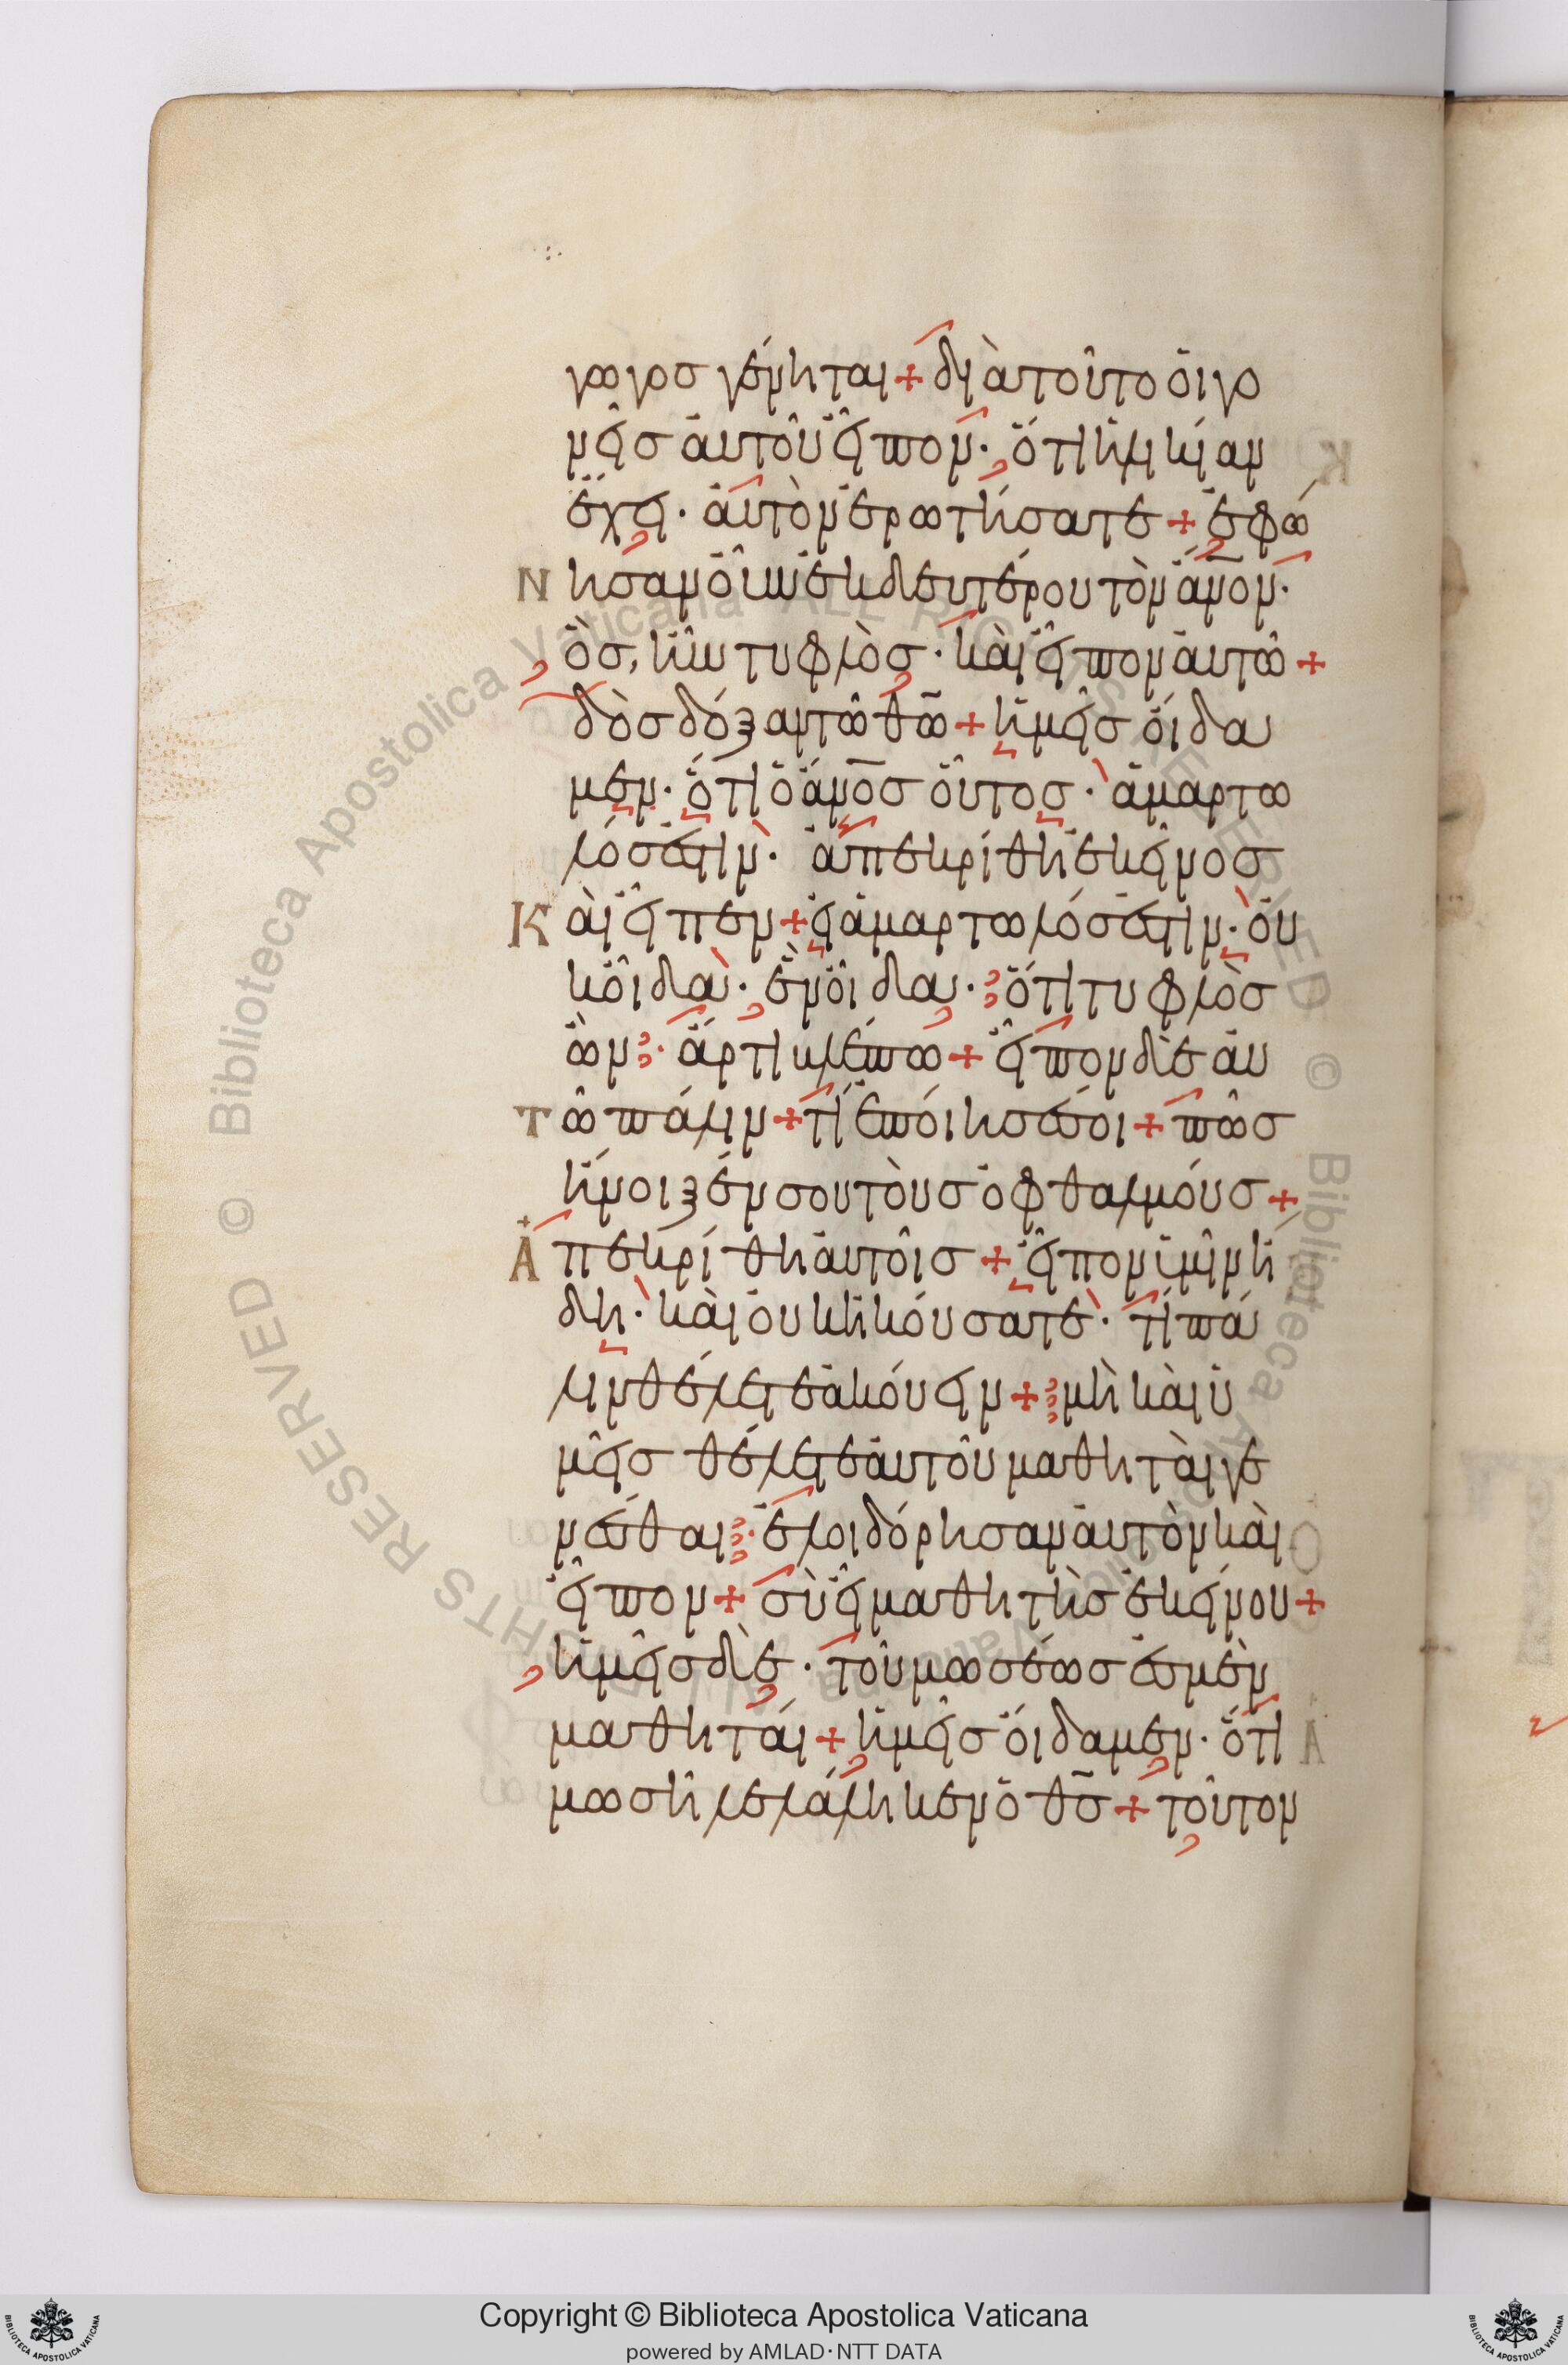 γωγος γένηται + διὰ τοῦτο οἱ γο
νεῖς αὐτοῦ εἶπον · ὅτι ἡλικίαν
ἔχει · αὐτὸν ἐρωτήσατε + ἐφώ
νησαν οὖν ἐκ δευτέρου τὸν ἄνον ·
ὃς, ἦν τυφλὸς · καὶ εἶπον αὐτῶ +
δὸς δόξαν τῶ θω + ἡμεῖς οἴδα
μεν · ὅτι ὁ ἄνος οὗτος · ἁμαρτω
λός ἐστιν · ἀπεκρίθη ἐκεῖνος
Καὶ εἶπεν + εἰ ἁμαρτωλός ἐστιν · οὐ
κ οἶδα · ἓν οἶδα · ὅτι τυφλὸς
ὢν · ἄρτι βλέπω + εἶπον δὲ αὐ
τῶ πάλιν + τί ἐποίησέ σοι + πῶς
ἤνοιξέν σου τοὺς ὀφθαλμούς +
Ἀπεκρίθη αὐτοῖς + εἶπον ὑμῖν ἤ
δη · καὶ οὐκ ἠκούσατε · τί πά
λιν θέλετε ἀκούειν + μὴ καὶ ὑ
μεῖς θέλετε αὐτοῦ μαθηταὶ γε
νέσθαι · ἐλοιδόρησαν αὐτὸν καὶ
εἶπον + σὺ εἶ μαθητὴς ἐκείνου +
ἡμεῖς δὲ · τοῦ μωσέως ἐσμὲν
μαθηταί + ἡμεῖς οἴδαμεν · ὅτι
μωσῆ λελάληκεν ὁ θς + τοῦτον
Copyright © Biblioteca Apostolica Vaticana
powered by AMLAD·NTT DATA